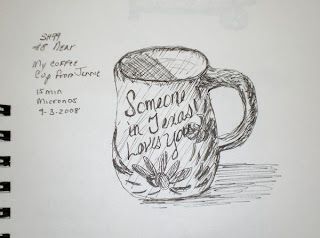 My Coffee
Cup from Jennie
15 min
Microns
9-3-2008
Someone
in Texas
Loves You